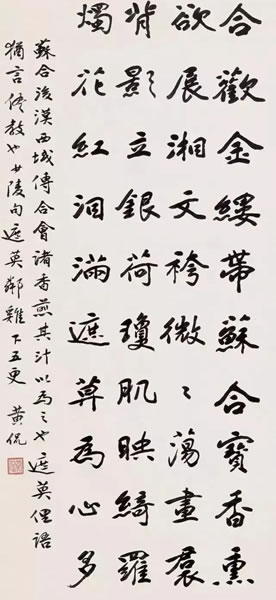 合歡金縷帶蘇合寶香熏
欲展湘文袴微〻蕩畫裠
背影立銀荷瓊肌映綺羅
燭花紅泪滿遮莫為心多
蘇合後漢西域傳合會諸香煎其汁以為之也遮莫俚語
猶言儘教也少陵句遮莫鄰雞下五更 黃侃